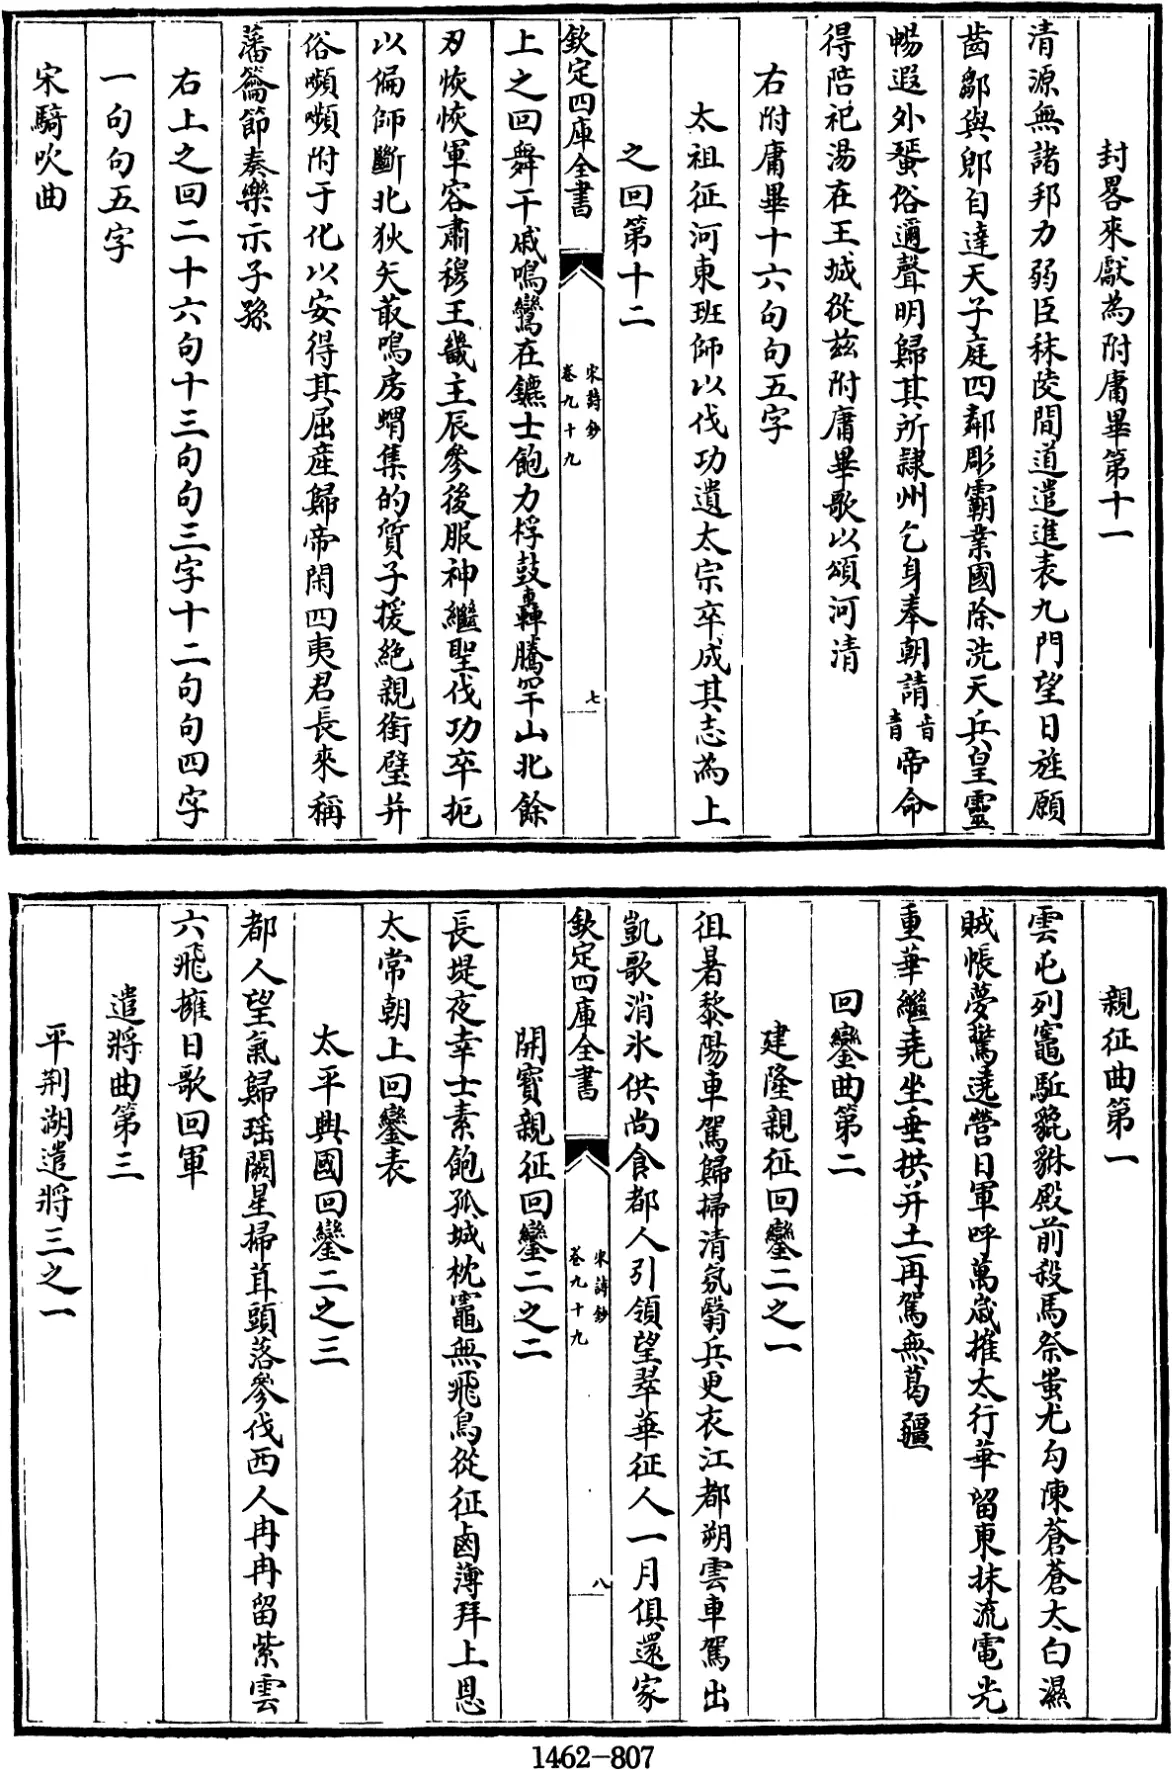 封畧來獻為附庸畢第十一
清源無諸邦力弱臣秣陵間道遣進表九門望日旌願
齒鄒與郳自達天子庭四鄰彫霸業國除洗天兵皇靈
暢遐外蜑俗邇聲明歸其所隷州乞身奉朝請音青帝命
得陪祀湯在王城從兹附庸畢歌以頌河清
右附庸畢十六句句五字
太祖征河東班師以伐功遺太宗卒成其志為上
之回第十二
欽定四庫全書
宋詩鈔
卷九十九
七
上之回舞干戚鳴鸞在鑣士飽力桴鼓轟騰罕山北餘
刃恢恢軍容肅穆王畿主辰參後服神繼聖伐功卒扼
以偏師斷北狄矢菆鳴房蝟集的質子援絶親銜璧并
俗嚬嚬附于化以安得其屈産歸帝閑四夷君長來稱
藩籥節奏樂示子孫
右上之回二十六句十三句句三字十二句句四字
一句句五字
宋騎吹曲
親征曲第一
雲屯列竈駈貔貅殿前殺馬祭蚩尤勾陳蒼蒼太白濕
賊帳夢驚遶營日軍呼萬嵗摧太行華留東抹流電光
重華繼堯坐垂拱并土再駕無葛疆
回鑾曲第二
建隆親征回鑾二之一
徂暑黎陽車駕歸掃清氛翳兵更衣江都朔雲車駕出
凱歌消氷供尚食都人引領望翠華征人一月俱還家
欽定四庫全書
宋詩鈔
卷九十九
八
開寳親征回鑾二之二
長堤夜幸士素飽孤城枕竈無飛鳥從征鹵薄拜上恩
太常朝上回鑾表
太平興國回鑾二之三
都人望氣歸瑶闕星掃茸頭落參伐西人冉冉留紫雲
六飛擁日歌回軍
遣將曲第三
平荆湖遣將三之一
1462-807